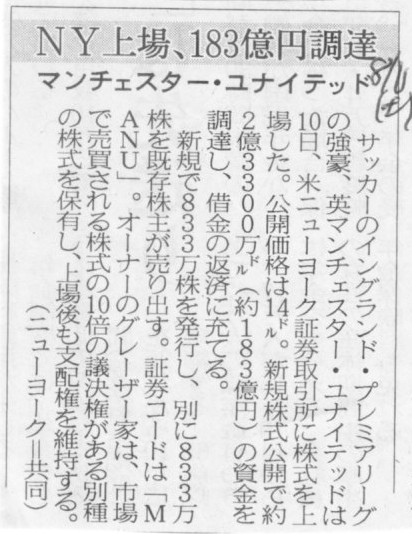 NY上場、183億円調達
マンチェスター・ユナイテッド
8/11
(土)
サッカーのイングランド・プレミアリーグ
の強豪、英マンチェスター・ユナイテッドは
10日、米ニューヨーク証券取引所に株式を上
場した。公開価格は14㌦。新規株式公開で約
2億3300万㌦（約183億円）の資金を
調達し、借金の返済に充てる。
新規で833万株を発行し、別に833万
株を既存株主が売り出す。証券コードは「M
ANU」。オーナーのグレーザー家は、市場
で売買される株式の10倍の議決権がある別種
の株式を保有し、上場後も支配権を維持する。
（ニューヨーク＝共同）